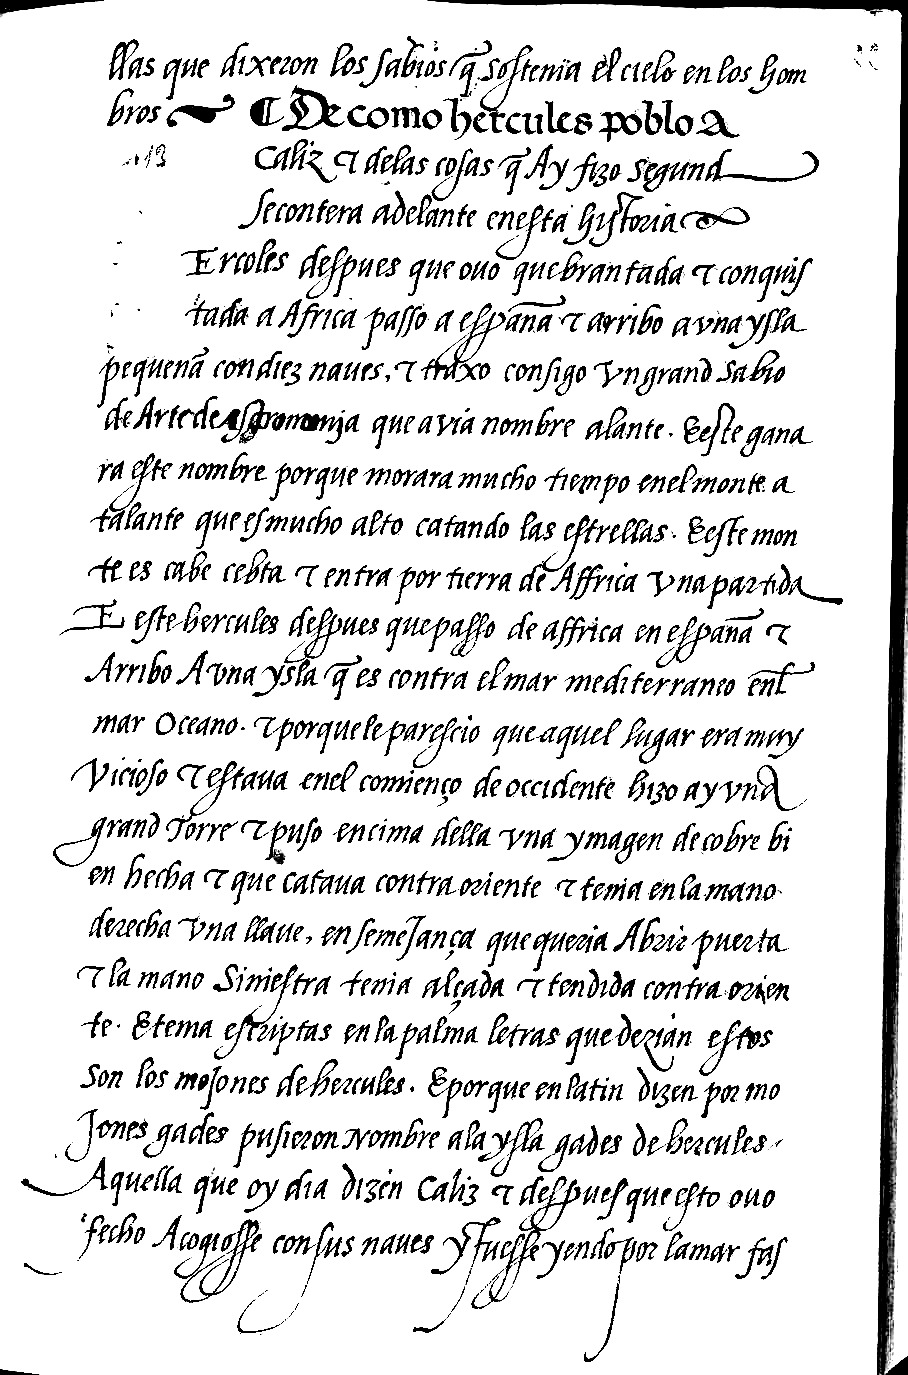 llas que dixeron los sabios q̃ sostenia el cielo en los hom
bros ¶ De como hercules poblo A
Caliz τ delas cosas q̃ Ay fizo segund
secontera adelante enesta historia
Ercoles despues que ouo quebrantada τ conquis
tada a Africa passo a espãna τ arribo a vna ysla
pequenã con diez naues, τ traxo consigo vn grand sabio
de Arte de astronomia que avia nombre alante. E este gana
ra este nombre porque morara mucho tiempo enel monte a
talante que es mucho alto catando las estrellas. E este mon
te es cabe cebta τ entra por tierra de Affrica vna partida
E este hercules despues que passo de affrica en espãna τ
Arribo A vna ysla q̃ es contra el mar mediterraneo enl̃
mar Oceano. τ porque le parescio que aquel lugar era muy
vicioso τ estaua enel comienço de occidente hizo ay vna
grand Torre τ puso encima della vna ymagen de cobre bi
en hecha τ que cataua contra oriente τ tenia en la mano
derecha vna llaue, en semejança que queria Abrir puerta
τ la mano siniestra tenia alçada τ tendida contra orien
te. E tenia escriptas en la palma letras que dezian estos
son los mojones de hercules. E porque en latin dizen por mo
jones gades pusieron nombre ala ysla gades de hercules.
Aquella que oy dia dizen Caliz τ despues que esto ouo
fecho Acogiosse con sus naues y fuesse yendo por la mar fas